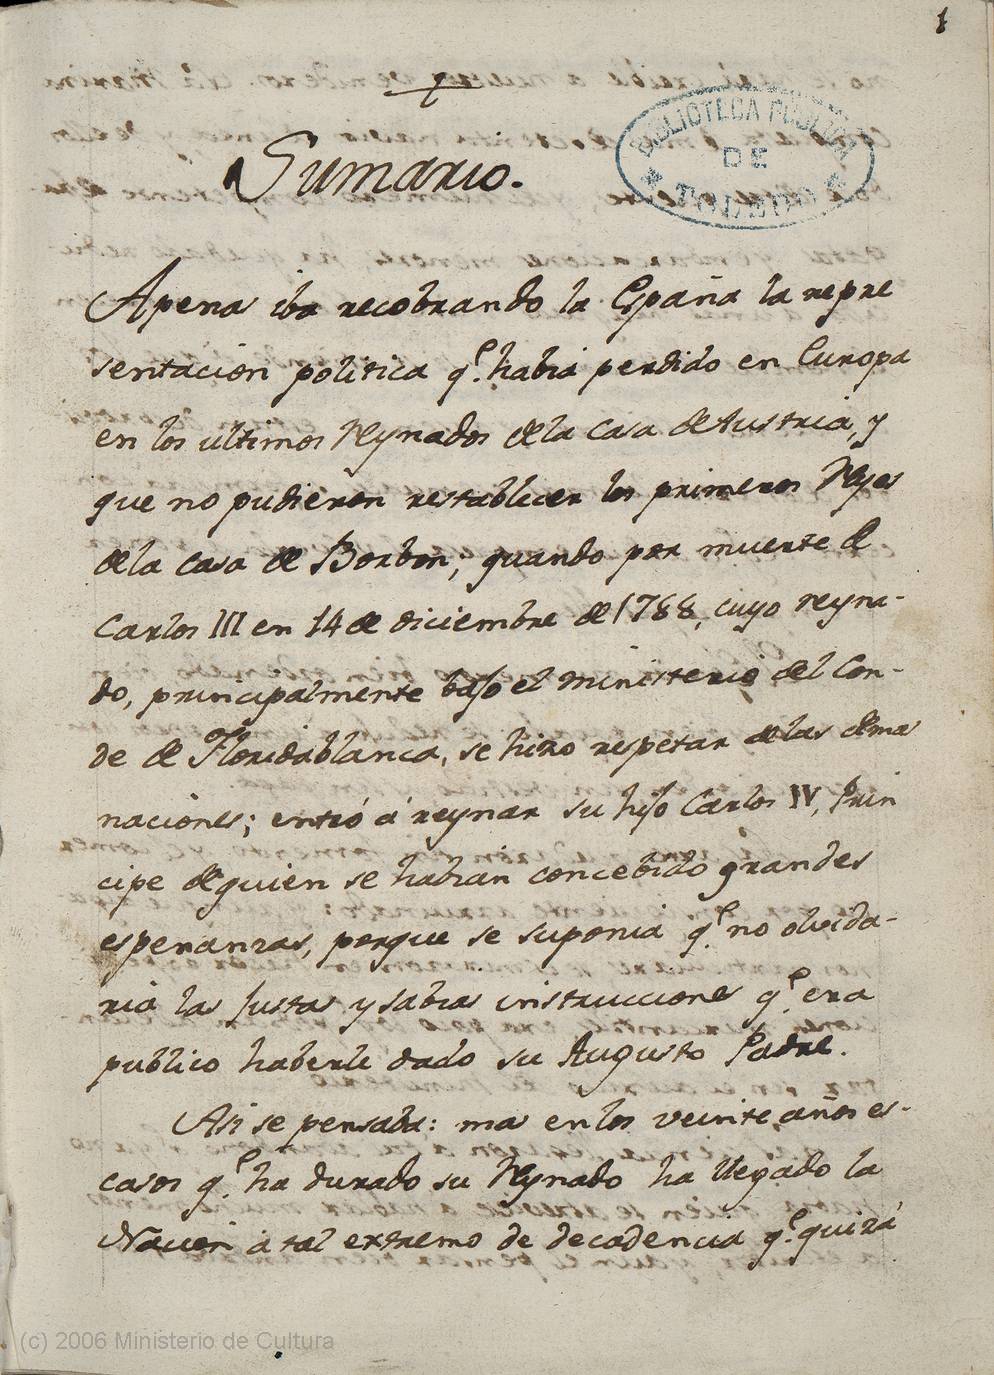 1
Sumario.
BIBLIOTECA PUBLICA
DE
TOLEDO
Apenas iba recobrando la España la repre
sentacion politica q.e habia perdido en Europa
en los ultimos Reynados de la Casa de Austria, y
que no pudieron restablecer los primeros Reyes
de la Casa de Borbon; quando por muerte de
Carlos III en 14 de diciembre de 1788, cuyo reyna-
do, principalmente bajo el ministerio del Con-
de de Floridablanca, se hizo respetar de las demas
naciones; entró á reynar su hijo Carlos IV, Prin
cipe de quien se habian concebido grandes
esperanzas, porque se suponia q.e no olvida-
ria las justas y sabias instrucciones q.e era
publico haberle dado su Augusto Padre.
Asi se pensaba: mas en los veinte años es-
casos q.e ha durado su Reynado ha llegado la
Nacion á tal extremo de decadencia q.e quizá
(c) 2006 Ministerio de Cultura